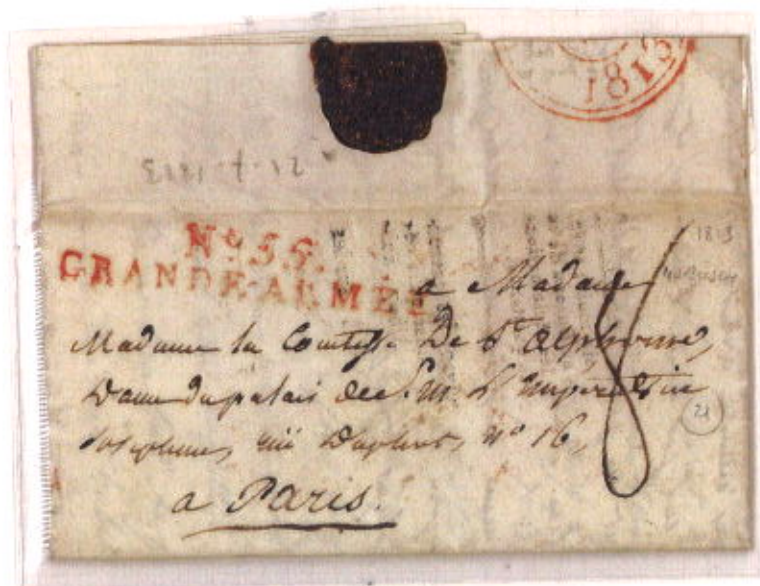 1813
No. 55.
GRANDE-ARMÉE
1813
a Madame
Madame la Comtesse De St. Alphonse,
Dame du palais de S. M. L'Imperatrice
Josephine, rue Duphot, no 16,
a Paris.
8
21